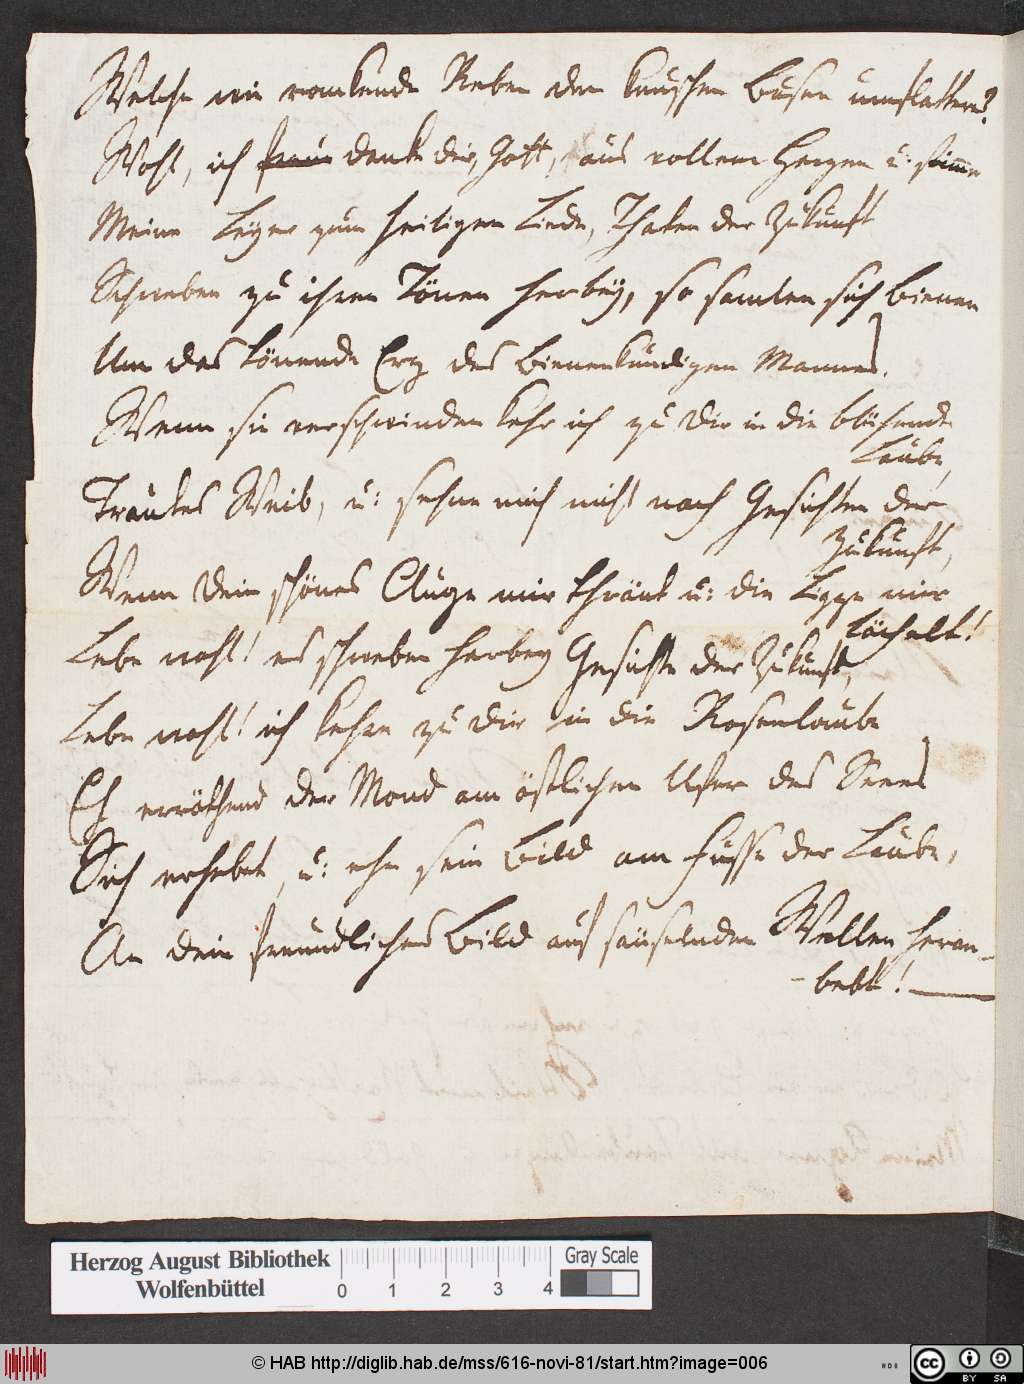 Welche wie rankende Reben den keuschen Busen umflattern?
Wohl, ich danke dir, Gott, aus vollem Herzen u: stimme
Meine Leyer zum heiligen Liede, Thaten der Zukunft
Schweben zu ihren Tönen herbey, so samlen sich Bienen
Um das tönende Erz des Bienenkundigen Mannes.
Wenn sie verschwinden kehr ich zu Dir in die blühende
Laube,
Trautes Weib, u: sehne mich nicht nach Gesichten der
Zukunft,
Wenn Dein schönes Auge mir thränt u: die Lippe mir
lächelt!
Lebe wohl! es schweben herbey Gesichte der Zukunft,
Lebe wohl! ich kehre zu Dir in die Rosenlaube
Eh erröthend der Mond am östlichen Ufer des Seees
Sich erhebet, u: ehe sein Bild am Fusse der Laube,
An dein freundliches Bild auf säuselnden Wellen heran-
-bebt! —
Herzog August Bibliothek
Wolfenbüttel
0 1 2 3 4
Gray Scale
© HAB http://diglib.hab.de/mss/616-novi-81/start.htm?image=006
cc BY SA